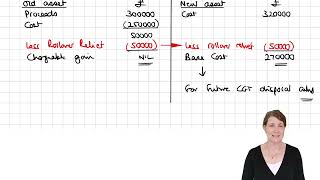 Old asset £
Proceeds 300000
Cost (250000)
50000
Less Rollover Relief (50000)
Chargeable gain NIL
New asset £
Cost 320000
Less rollover relief (50000)
Base Cost 270000
For future CGT disposal